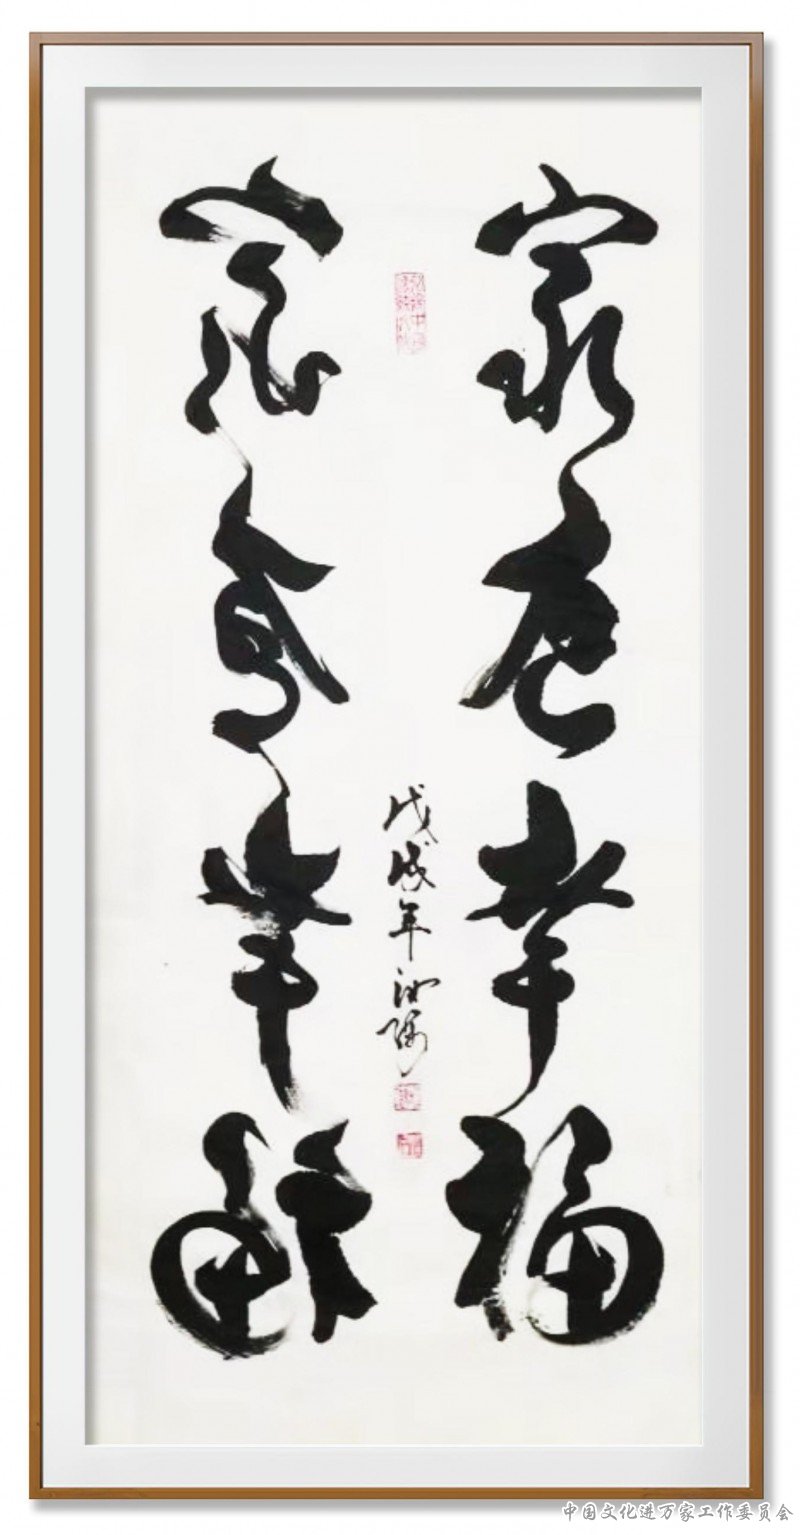 家庭幸福
戊戌年
家庭幸福
中国文化进万家工作委员会